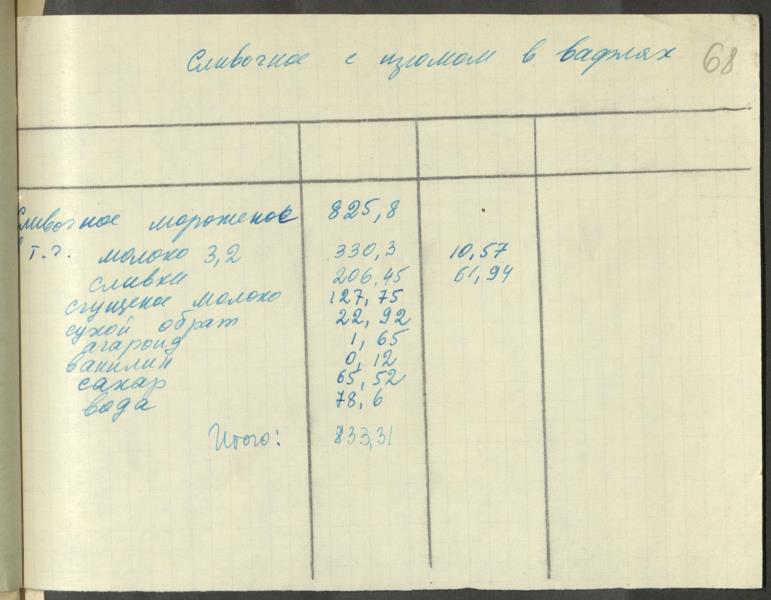 Сливочное с изюмом в вафлях 68
Сливочное мороженое 825,8
в т.ч. молоко 3,2 330,3 10,57
сливки 206,45 61,94
сгущеное молоко 127,75
сухой обрат 22,92
агароид 1,65
ванилин 0,12
сахар 65,52
вода 78,6
Итого: 833,31